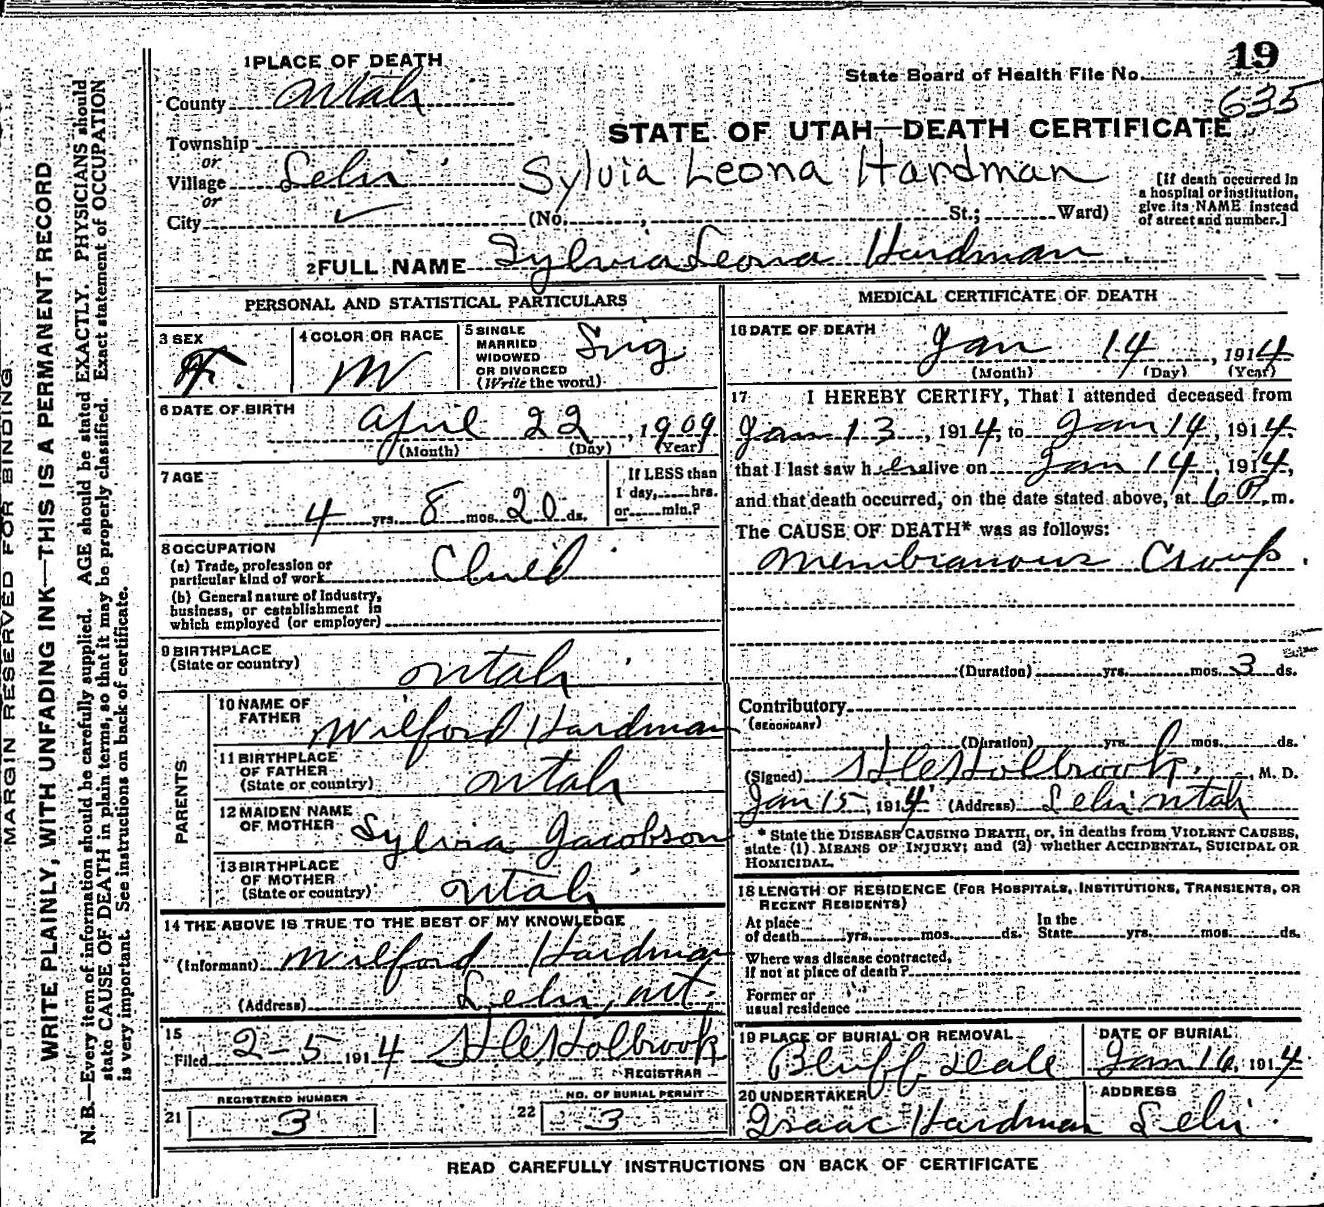 MARGIN RESERVED FOR BINDING.
WRITE PLAINLY, WITH UNFADING INK—THIS IS A PERMANENT RECORD
N. B.—Every item of information should be carefully supplied. AGE should be stated EXACTLY. PHYSICIANS should
state CAUSE OF DEATH in plain terms, so that it may be properly classified. Exact statement of OCCUPATION
is very important. See instructions on back of certificate.
1 PLACE OF DEATH
19
State Board of Health File No.
635
County Utah
STATE OF UTAH—DEATH CERTIFICATE
Township
or
Village Lehi
Sylvia Leona Hardman
or
City
(No. , St.; Ward)
[If death occurred in
a hospital or institution,
give its NAME instead
of street and number.]
2 FULL NAME Sylvia Leona Hardman
PERSONAL AND STATISTICAL PARTICULARS
3 SEX F.
4 COLOR OR RACE W
5 SINGLE
MARRIED
WIDOWED
OR DIVORCED
(Write the word) Sing
6 DATE OF BIRTH
April 22, 1909
(Month) (Day) (Year)
7 AGE
4 yrs. 8 mos. 20 ds.
If LESS than
1 day, hrs.
or min.?
8 OCCUPATION
(a) Trade, profession or
particular kind of work Child
(b) General nature of industry,
business, or establishment in
which employed (or employer)
9 BIRTHPLACE
(State or country) Utah
PARENTS
10 NAME OF
FATHER Wilford Hardman
11 BIRTHPLACE
OF FATHER
(State or country) Utah
12 MAIDEN NAME
OF MOTHER Sylvia Jacobson
13 BIRTHPLACE
OF MOTHER
(State or country) Utah
14 THE ABOVE IS TRUE TO THE BEST OF MY KNOWLEDGE
(Informant) Wilford Hardman
(Address) Lehi, Ut.
15
Filed 2-5 1914 Holbrook
REGISTRAR
21 REGISTERED NUMBER
3
22 NO. OF BURIAL PERMIT
3
MEDICAL CERTIFICATE OF DEATH
16 DATE OF DEATH
Jan 14, 1914
(Month) (Day) (Year)
17 I HEREBY CERTIFY, That I attended deceased from
Jan 13, 1914, to Jan 14, 1914.
that I last saw her alive on Jan 14, 1914,
and that death occurred, on the date stated above, at 6 P. m.
The CAUSE OF DEATH* was as follows:
Membranous Croup.
(Duration) yrs. mos. 3 ds.
Contributory
(SECONDARY)
(Duration) yrs. mos. ds.
(Signed) Holbrook, M. D.
Jan 15, 1914 (Address) Lehi Utah
* State the DISEASE CAUSING DEATH, or, in deaths from VIOLENT CAUSES,
state (1) MEANS OF INJURY; and (2) whether ACCIDENTAL, SUICIDAL OR
HOMICIDAL.
18 LENGTH OF RESIDENCE (FOR HOSPITALS, INSTITUTIONS, TRANSIENTS, OR
RECENT RESIDENTS)
At place
of death yrs. mos. ds.
In the
State yrs. mos. ds.
Where was disease contracted,
if not at place of death?
Former or
usual residence
19 PLACE OF BURIAL OR REMOVAL
Bluff Dale
DATE OF BURIAL
Jan 16, 1914
20 UNDERTAKER
Isaac Hardman
ADDRESS
Lehi
READ CAREFULLY INSTRUCTIONS ON BACK OF CERTIFICATE